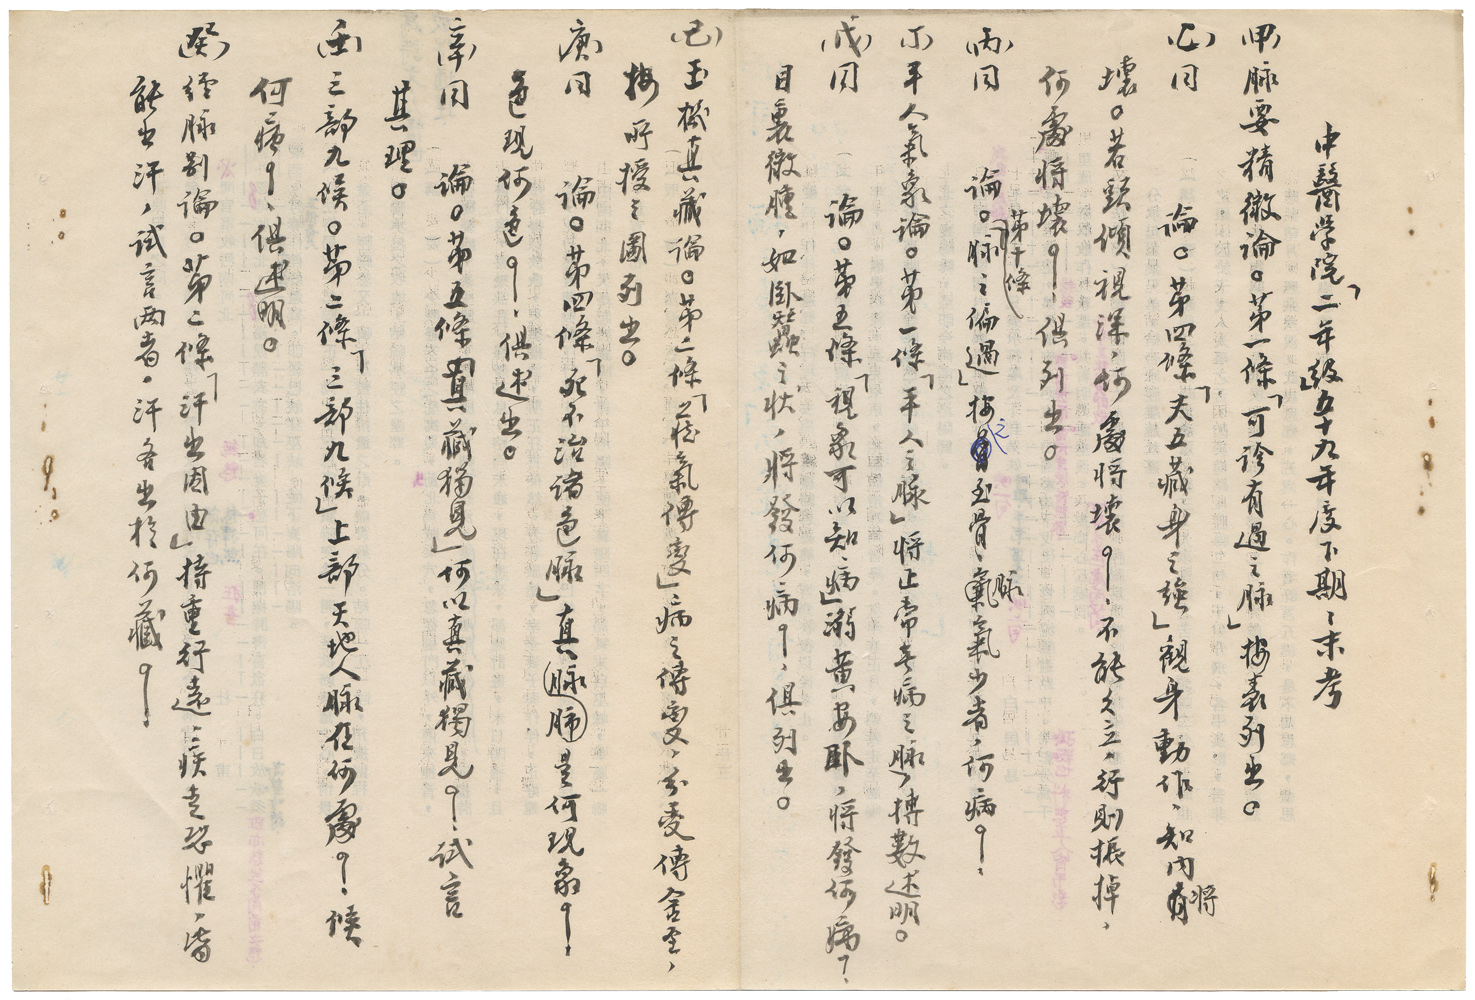 中醫学院「二年級」五十九年度下期：末考
(甲)脉要精微論。第一條「可診有過之脉」按表列出。
(乙)同　論。第四條「夫五藏身之強」觀身動作，知内將
壞。若頭傾視深，何處將壞？不能久立，行則振掉，
何處將壞？俱列出。
(丙)同　論。第十條「脉之偏過」按之至骨，脉氣少者，何病？
(丁)平人氣象論。第一條「平人之脉」將正常與病之脉，搏數述明。
(戊)同　論。第五條「視象可以知病」溺黄安卧，將發何病？
目裏微腫，如卧蠶之状，將發何病？俱列出。
(己)玉機真藏論。第二條「藏氣傳變」病之傳變，分受傳舍至，
按所授之圖列出。
(庚)同　論。第四條「死不治諸色脉」真肺脉是何現象？
色現何色？俱述出。
(辛)同　論。第五條「真藏獨見」何以真藏獨見？試言
其理。
(壬)三部九候。第二條「三部九候」上部天地人脉在何處？候
何病？俱述明。
(癸)經脉别論。第二條「汗出因由」持重行遠，疾走恐懼，皆
能出汗，試言兩者，汗各出於何藏？